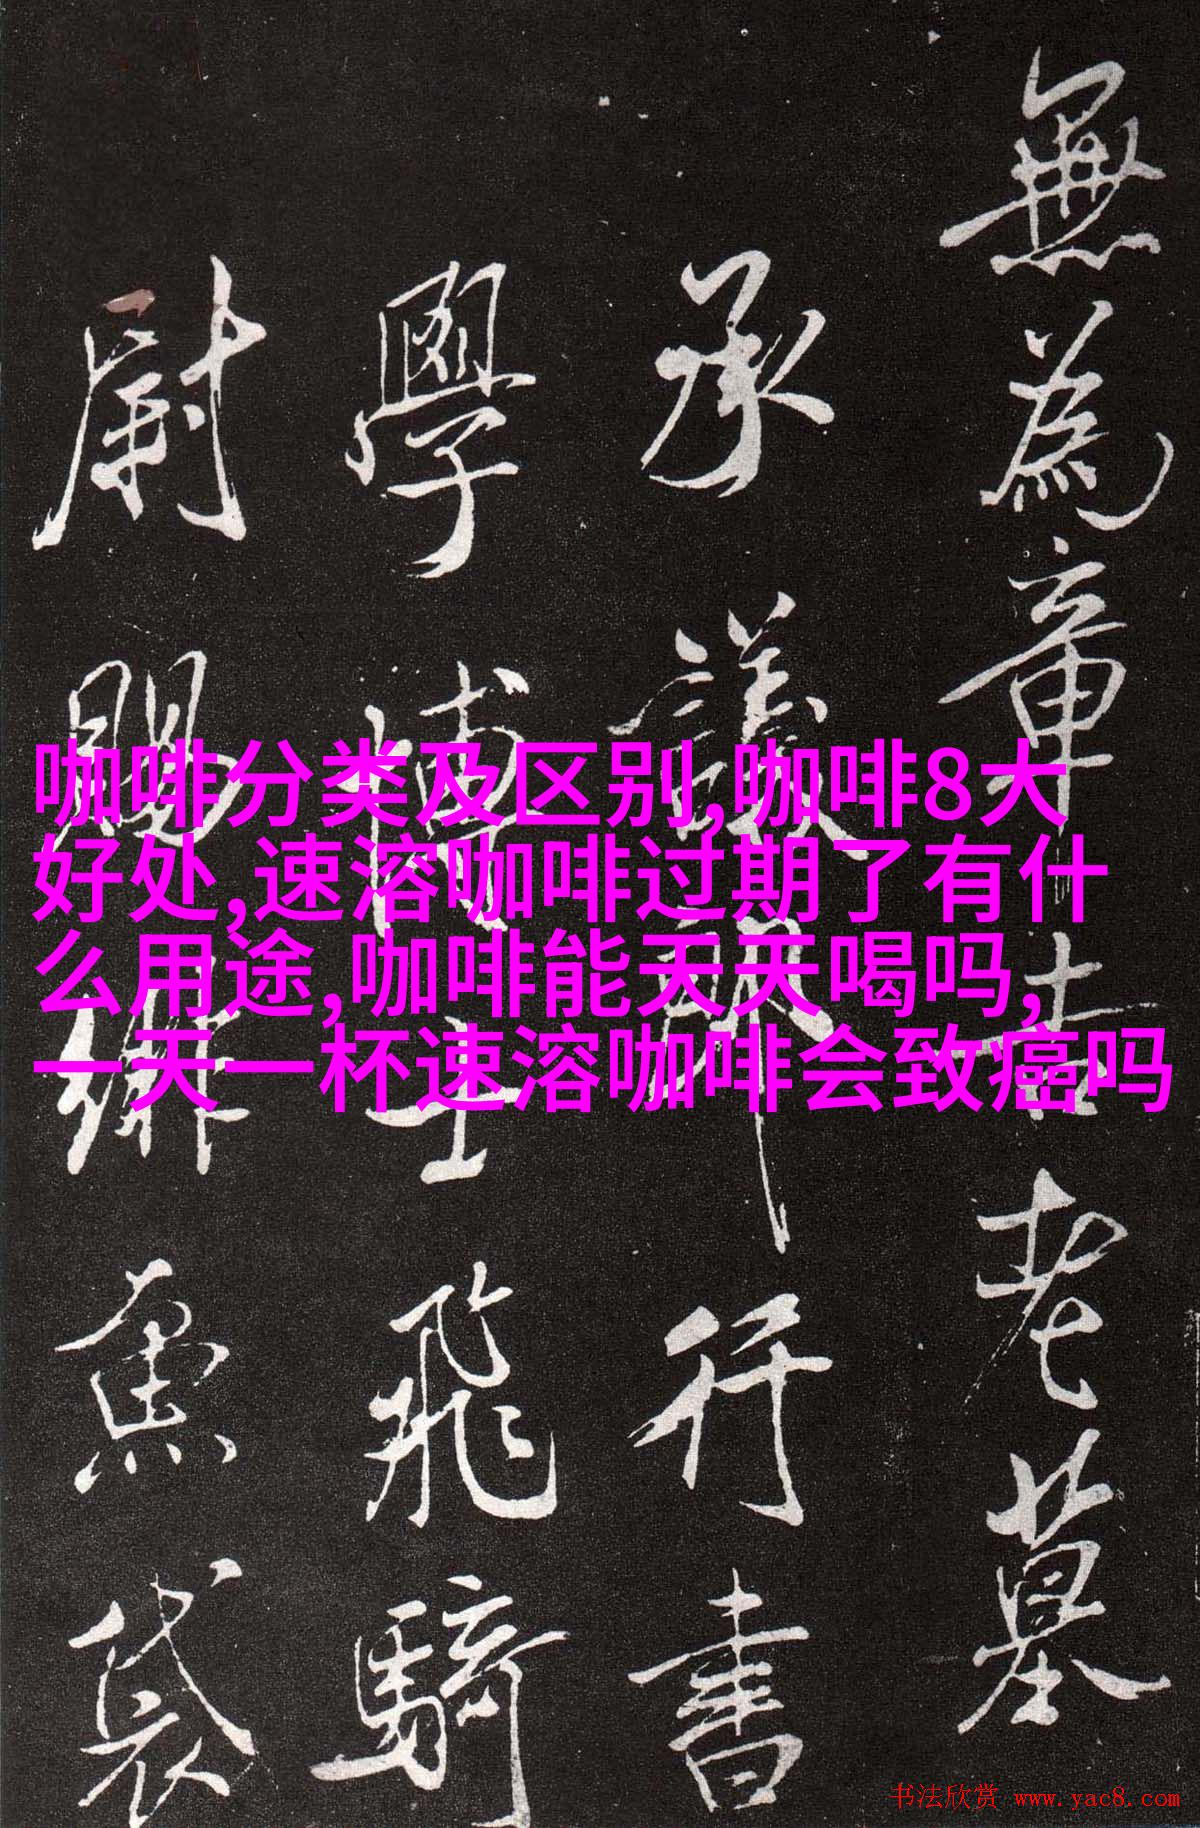 無為章吉老墓
承議郎行書
學博士飛騎
尉賜緋魚袋
咖啡分类及区别,咖啡8大
好处,速溶咖啡过期了有什
么用途,咖啡能天天喝吗,
一天一杯速溶咖啡会致癌吗
书法欣赏 www.yac8.com